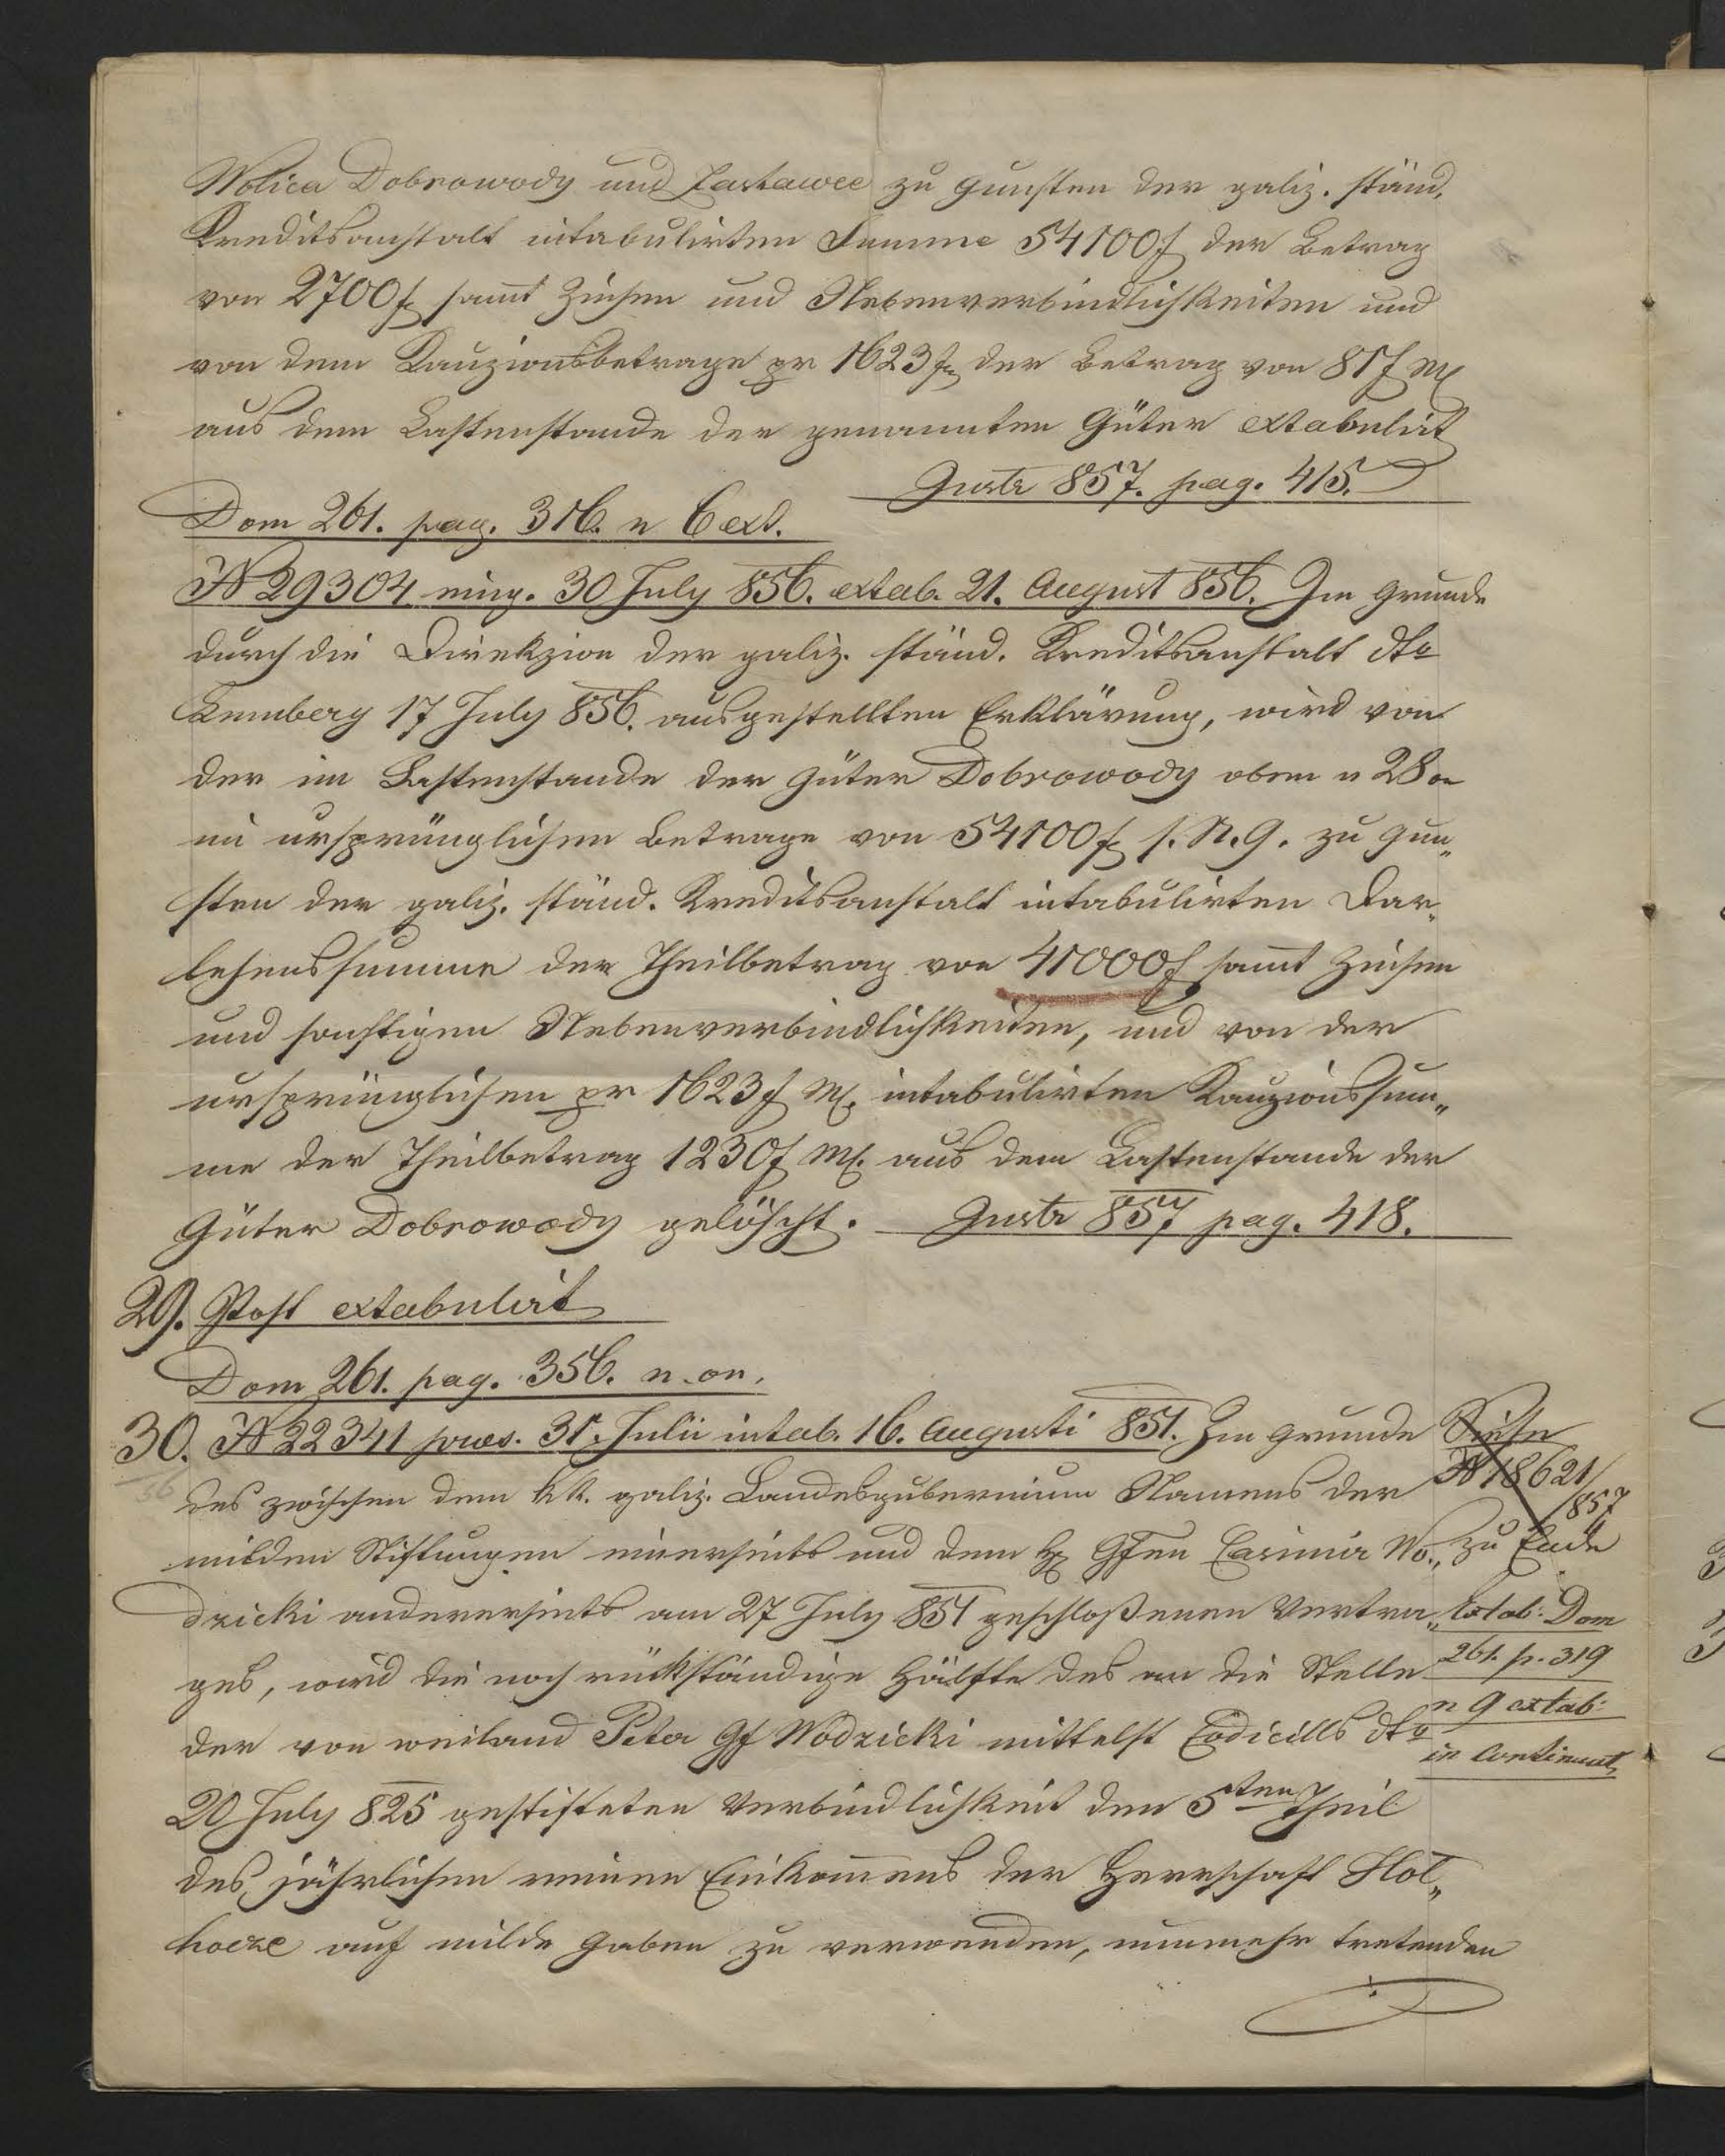 Wolica Dobrowody und Zastawce zu Gunsten der galiz. ständ.
Kreditsanstalt intabulirten Summe 54100 f der Betrag
von 2700 f sam̄t Zinsen und Nebenverbindlichkeiten und
von dem Kauzionsbetrage pr 1623 f der Betrag von 81 f M
aus dem Lastenstande der genannten Güter extabulirt
Instr 857. pag. 415.
Dom 261. pag. 316. n 6 ext.
N 29304 eing. 30 July 856. extab. 21. August 856. Im Grunde
durch die Direkzion der galiz. ständ. Kreditsanstalt dto
Lemberg 17 July 856. ausgestellten Erklärung, wird von
der im Lastenstande der Güter Dobrowody oben n 28 on
im ursprünglichen Betrage von 54100 f s. N. G. zu Gun„
sten der galiz. ständ. Kreditsanstalt intabulirten Dar„
lehenssumme der Theilbetrag von 41000 f sam̄t Zinsen
und sonstigen Nebenverbindlichkeiten, und von der
ursprünglichen pr 1623 f M. intabulirten Kauzionssum„
me der Theilbetrag 1230 f M. aus dem Lastenstande der
Güter Dobrowody gelöscht. Instr 857 pag. 418.
29. Post extabulirt
Dom 261. pag. 356. n. on.
30. N 22341 praes. 31. Julii intab. 16. Augusti 851. Im Grunde
des zwischen dem kk. galiz. Landesgubernium Namens der
milden Stiftungen einerseits und dem H Gfen Casimir Wo„
dzicki andererseits am 27 July 851 geschloßenen Vertra„
ges, wird die noch rückständige Hälfte des an die Stelle
der von weiland Peter Gf Wodzicki mittelst Codicills dto
20 July 825 gestifteten Verbindlichkeit den 5ten Theil
des jährlichen reinen Einkom̄ens der Herrschaft Hol„
hocze auf milde Gaben zu verwenden, nunmehr tretenden
Siehe
N 18621/
857
zu Ende
Extab: Dom
261. p. 319
n 9 extab:
in continuat